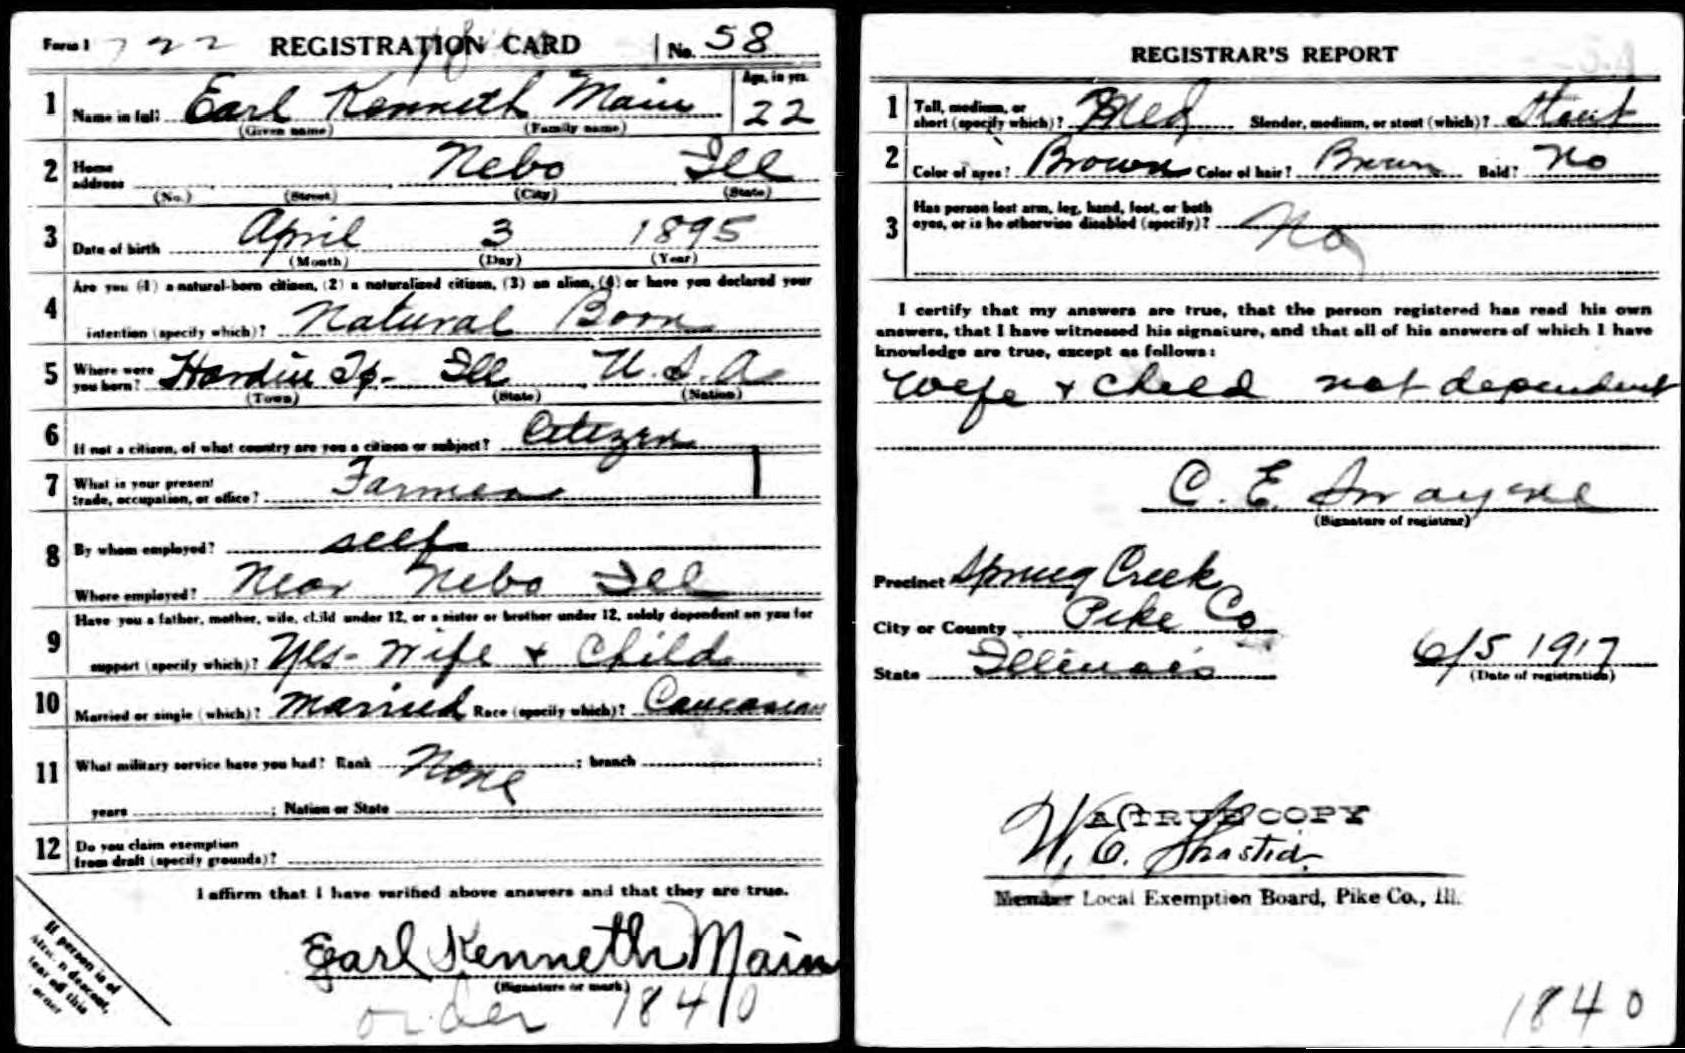 Form 1 722 REGISTRATION CARD No. 58
1 Name in full Earl Kenneth Main Age, in yrs. 22
(Given name) (Family name)
2 Home address Nebo Ill
(No.) (Street) (City) (State)
3 Date of birth April 3 1895
(Month) (Day) (Year)
4 Are you (1) a natural-born citizen, (2) a naturalized citizen, (3) an alien, (4) or have you declared your
intention (specify which)? Natural Born
5 Where were you born? Hardin Tp. Ill U.S.A.
(Town) (State) (Nation)
6 If not a citizen, of what country are you a citizen or subject? Citizen
7 What is your present trade, occupation, or office? Farmer
8 By whom employed? self
Where employed? Near Nebo Ill
9 Have you a father, mother, wife, child under 12, or a sister or brother under 12, solely dependent on you for
support (specify which)? Yes - wife + Child
10 Married or single (which)? Married Race (specify which)? Caucasian
11 What military service have you had? Rank None ; branch ;
years ; Nation or State
12 Do you claim exemption from draft (specify grounds)?
I affirm that I have verified above answers and that they are true.
Earl Kenneth Main
(Signature or mark)
If person is of
African descent,
tear off this
corner
order 1840
REGISTRAR'S REPORT
1 Tall, medium, or short (specify which)? Med Slender, medium, or stout (which)? Stout
2 Color of eyes? Brown Color of hair? Brown Bald? No
3 Has person lost arm, leg, hand, foot, or both
eyes, or is he otherwise disabled (specify)? No
I certify that my answers are true, that the person registered has read his own
answers, that I have witnessed his signature, and that all of his answers of which I have
knowledge are true, except as follows:
Wife + Child not dependent
C. E. Swayne
(Signature of registrar)
Precinct Spring Creek
City or County Pike Co
State Illinois 6/5 1917
(Date of registration)
A TRUE COPY
W. E. Shastid
Member Local Exemption Board, Pike Co., Ill.
1840